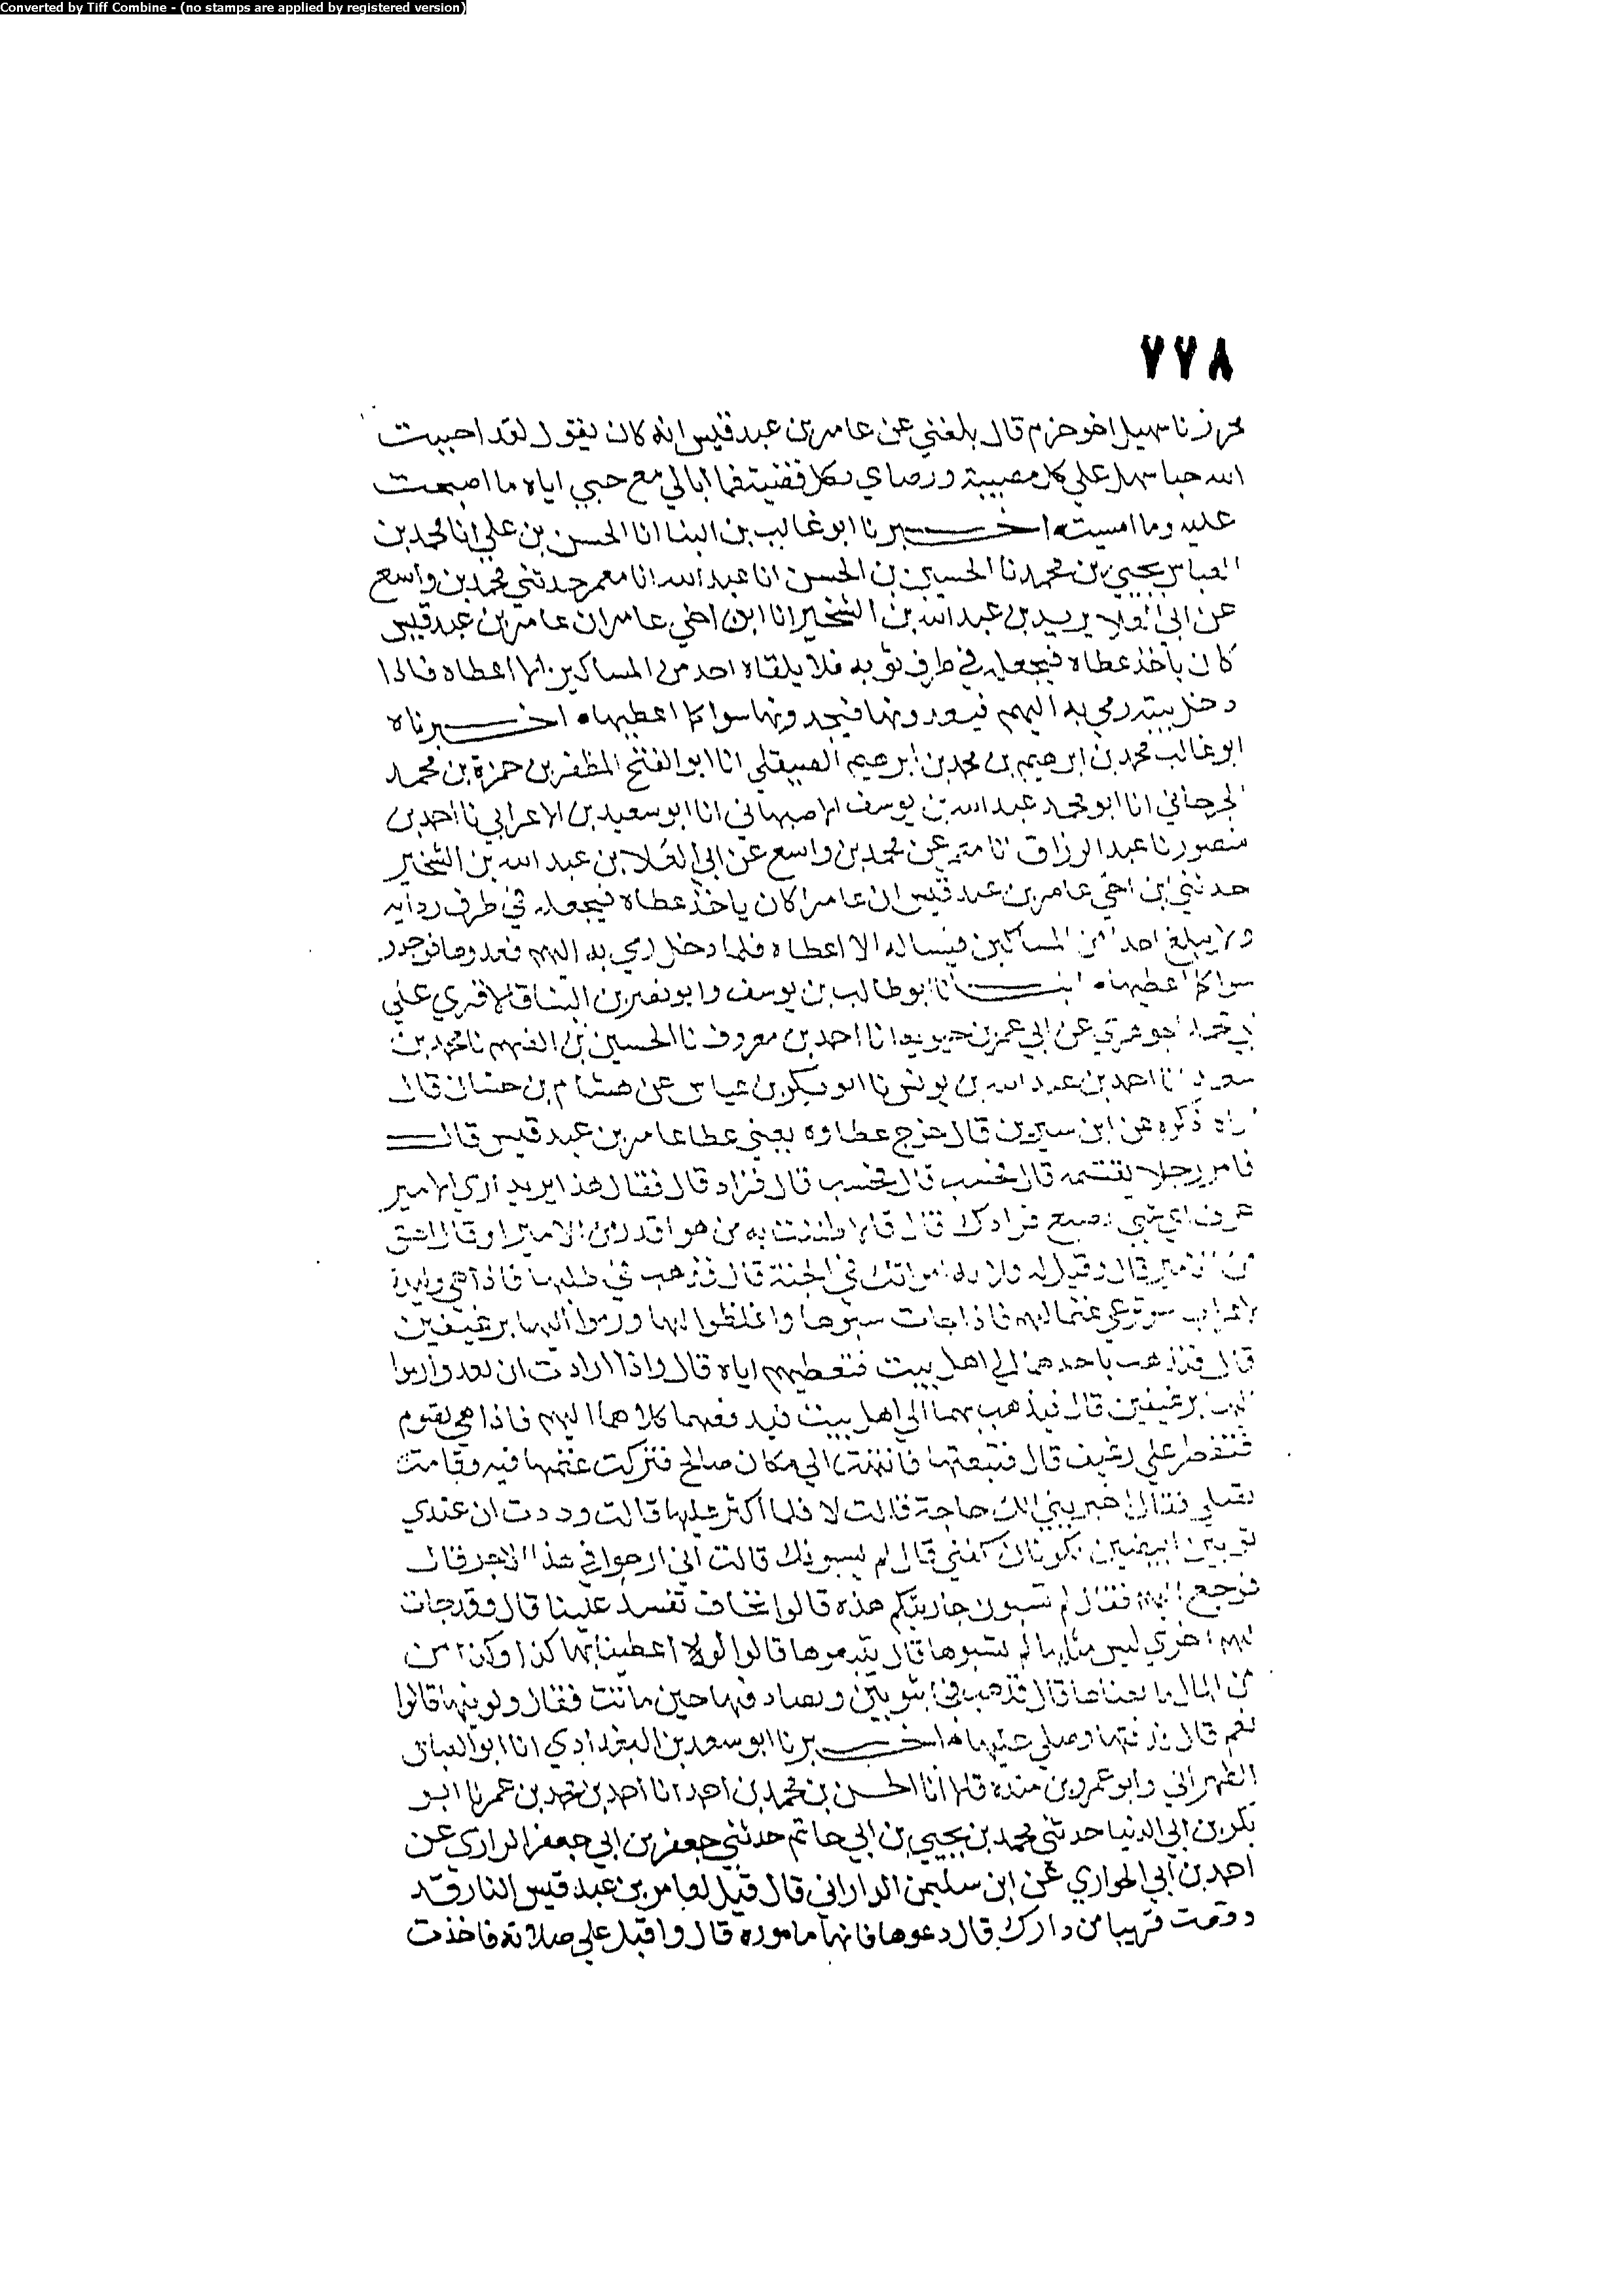 Converted by Tiff Combine - (no stamps are applied by registered version)
٧٧٨
محرز نا سهيل اخو حزم قال بلغني عن عامر بن عبد قيس انه كان يقول لقد احببت
الله حبا سهل علي كل مصيبة ورضاي بكل قضية فما ابالي مع حبي اياه ما اصبحت
عليه وما امسيت اخبرنا ابو غالب بن البنا انا الحسن بن علي انا محمد بن
العباس يحيي بن محمد نا الحسين بن الحسن انا عبد الله انا معمر حدثني محمد بن واسع
عن ابي العلا يزيد بن عبد الله بن الشخير انا ابن اخي عامر ان عامر بن عبد قيس
كان ياخذ عطاه فيجعله في طرف ثوبه فلا يلقاه احد من المساكين الا اعطاه فاذا
دخل بيته رمي به اليهم فيعدونها فيجدونها سوا كما اعطيها اخبرناه
ابو غالب محمد بن ابرهيم بن محمد بن ابرهيم الصيقلي انا ابو الفتح المظفر بن حمزة بن محمد
الجرجاني انا ابو محمد عبد الله بن يوسف الاصبهاني انا ابو سعيد بن الاعرابي نا احمد بن
منصور نا عبد الرزاق انا معمر عن محمد بن واسع عن ابي العلا بن عبد الله بن الشخير
حدثني ابن اخي عامر بن عبد قيس ان عامرا كان ياخذ عطاه فيجعله في طرف ردايه
ولا يبلغ احدا من المساكين فيساله الا اعطاه فلما دخل رمي به اليهم فعدوها فوجدو
سوا كما اعطيها انبانا ابو طالب بن يوسف وابو نصر بن البنا قالا قري علي
ابي محمد الجوهري عن ابي عمر بن حيويه انا احمد بن معروف نا الحسين بن الفهم نا محمد بن
سعد انا احمد بن عبد الله بن يونس نا ابو بكر بن عياش عن هشام بن حسان قال
اراه ذكره عن ابن سيرين قال خرج عطاوه يعني عطا عامر بن عبد قيس قال
فامر رجلا يقسمه قال فحسب قال فحسب قال فزاد قال فقال هذا يريد اري الامير
عرف اي شي تصنع فزادك قال قال الا ظننت به من هو اقدر من الامير او قال اشق
من الامير قال وقيل له فلانة امراتك في الجنة قال فذهب في طلبها فاذا هي وليدة
لاعراب سو ترعي غنما لهم فاذا جات سبوها واغلظوا لها ورموا اليها برغيفين
قال فتذهب باحدهما الي اهل بيت فتعطيهم اياه قال واذا ارادت ان تعدوا رموا
اليها برغيفين قال فيذهب بهما الي اهل بيت فيدفعهما كلاهما اليهم فاذا هي تصوم
فتفطر علي رغيف قال فتبعتها فانتهت الي مكان صالح فتركت غنمها فيه وقامت
تصلي فقال اخبريني الك حاجة قالت لا فلما اكثر عليها قالت وددت ان عندي
ثوبين ابيضين يكونان كفني قال لم يسبونك قالت اني ارجوا في هذا الاجر قال
فرجع اليهم فقال لم تسبون جاريتكم هذه قالوا نخاف تفسد علينا قال وقد جات
لهم اخري ليس مثلها لم يسبوها قال تبيعوها قالوا لو اعطيتنا بها كذا وكذا من
من المال ما بعناها قال فذهب فجا بثوبين وصادفها حين ماتت فقال ولونيها قالوا
نعم قال فدفنها وصلي عليها اخبرنا ابو سعد بن البغدادي انا ابو العباس
الطهراني وابو عمرو بن منده قالا انا الحسن بن محمد بن احمد انا احمد بن محمد بن عمر نا ابو
بكر بن ابي الدنيا حدثني محمد بن يحيي بن ابي حاتم حدثني جعفر بن ابي جعفر الرازي عن
احمد بن ابي الحواري عن ابن سليمن الداراني قال قيل لعامر بن عبد قيس النار قد
وقعت قريبا من دارك قال دعوها فانها مامورة قال واقبل علي صلاته فاخذت